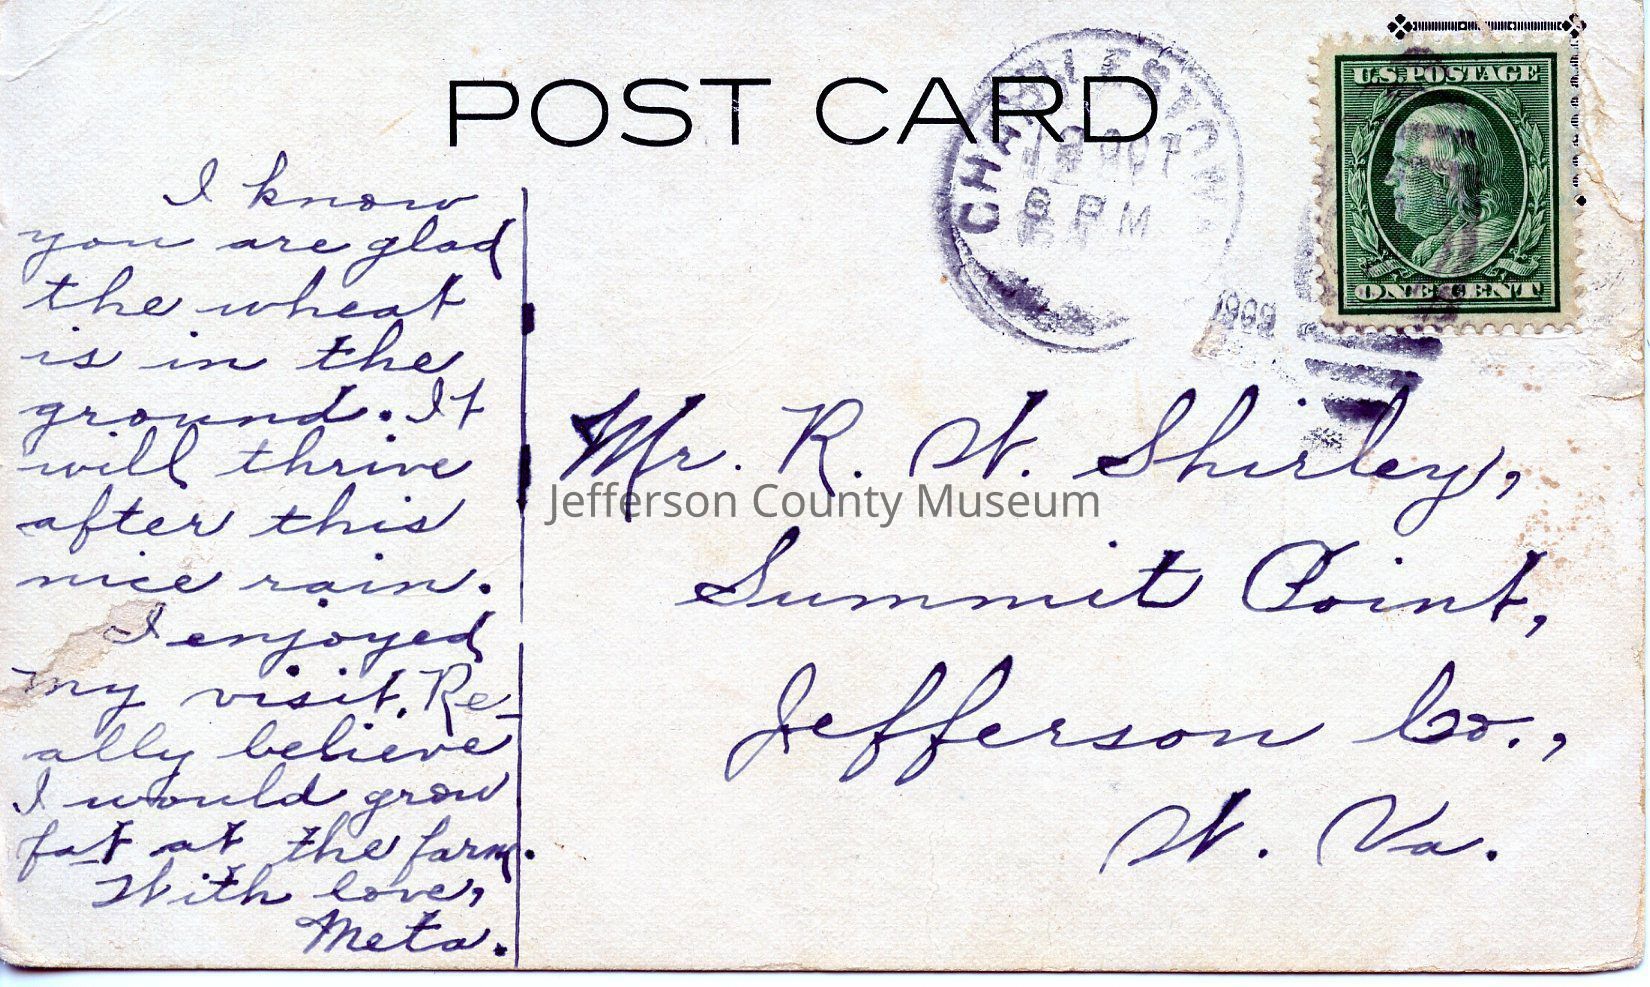 POST CARD
CHARLESTOWN
OCT
6 PM
U.S. POSTAGE
ONE CENT
I know
you are glad
the wheat
is in the
ground. It
will thrive
after this
nice rain.
I enjoyed
my visit. Re-
ally believe
I would grow
fat at the farm.
With love,
Meta.
Mr. R. W. Shirley,
Summit Point,
Jefferson Co.,
W. Va.
Jefferson County Museum